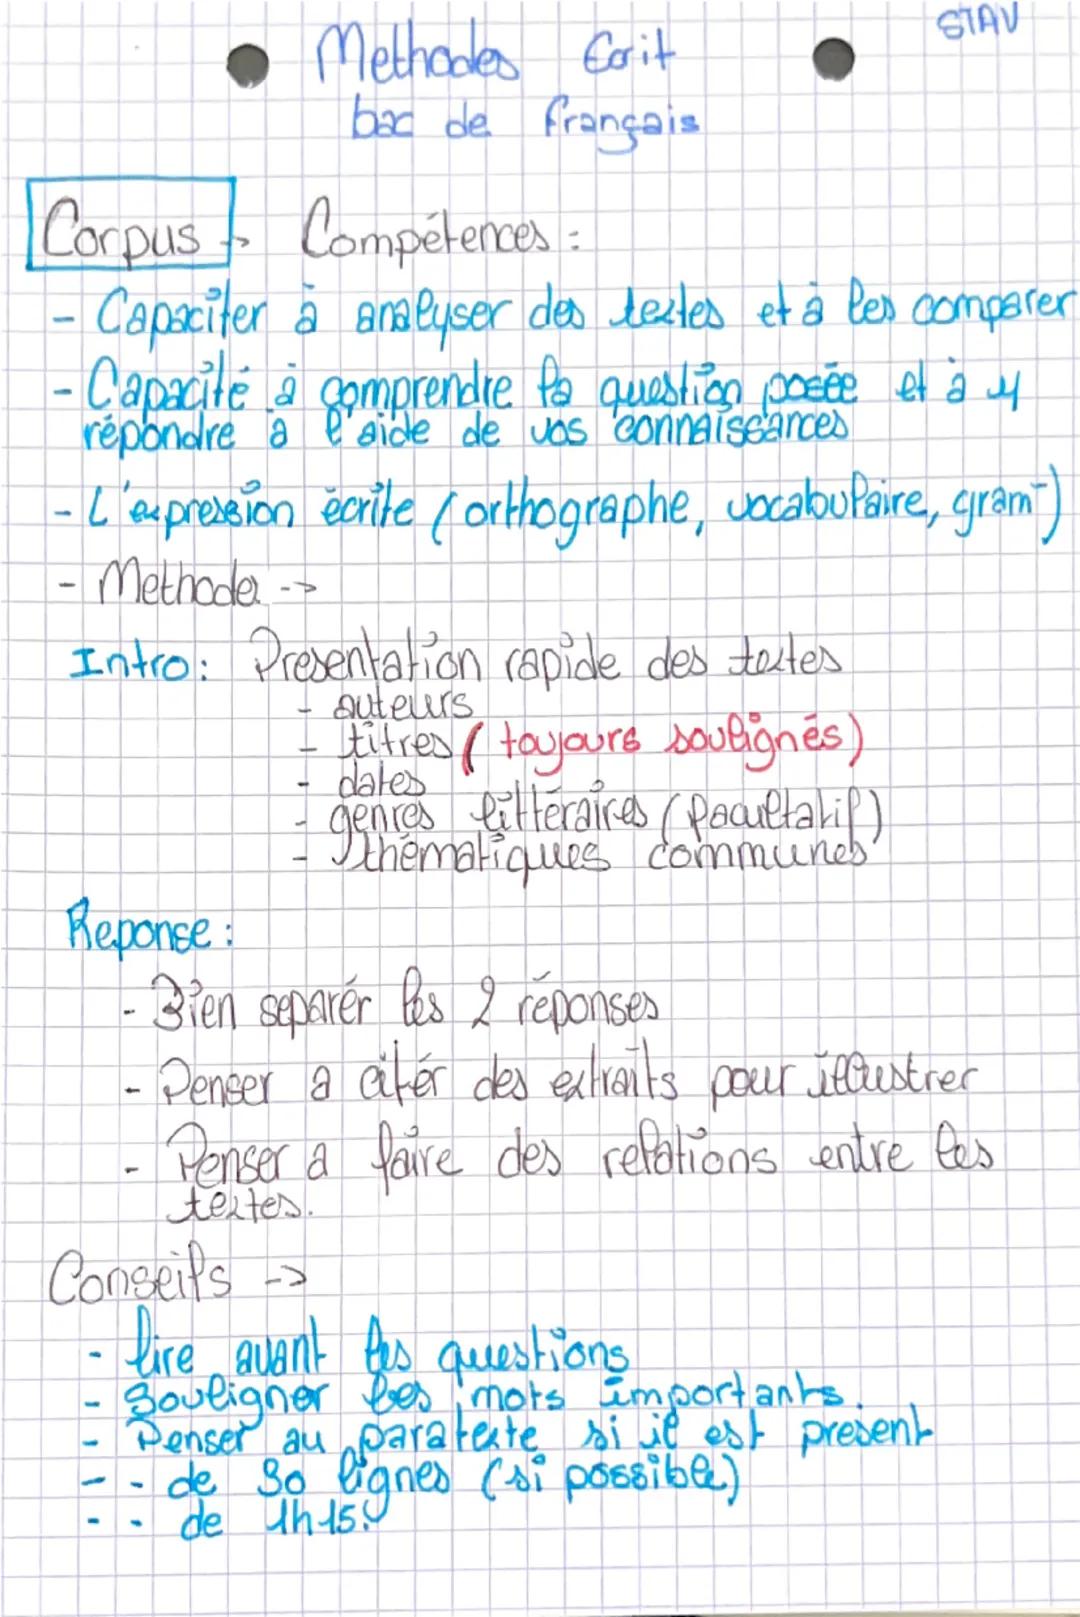 STAV
Methodes Ecrit
bac de français
Corpus -> Compétences :
- Capaciter à analyser des textes et à les comparer
- Capacité à comprendre la question posée et à y
répondre à l'aide de vos connaissances
- L'expression écrite (orthographe, vocabulaire, gram-)
- Methode ->
Intro : Presentation rapide des textes
- auteurs
- titres (toujours soulignés)
- dates
- genres littéraires (facultatif)
- thématiques communes
Reponse :
- Bien separér les 2 réponses
- Penser a citér des extraits pour illustrer
- Penser a faire des relations entre les
textes.
Conseils ->
- lire avant les questions
- Souligner les mots importants.
- Penser au paratexte si il est present
- - de 30 lignes (si possible)
- - de 1h15.